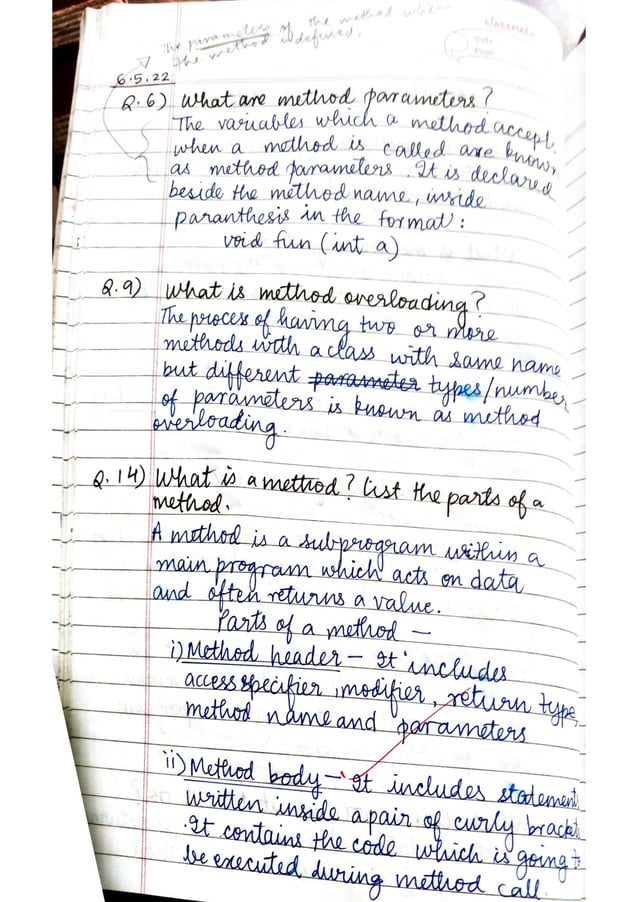 The parameters of the method when
the method is defined.
classmate
Date
Page
6.5.22
Q.6) What are method parameters?
The variables which a method accept
when a method is called are known
as method parameters. It is declared
beside the method name, inside
paranthesis in the format:
void fun (int a)
Q.9) What is method overloading?
The process of having two or more
methods with a class with same name
but different parameter types/number
of parameters is known as method
overloading.
Q.14) What is a method? List the parts of a
method.
A method is a subprogram within a
main program which acts on data
and often returns a value.
Parts of a method —
i) Method header – It includes
access specifier, modifier, return type,
method name and parameters
ii) Method body – It includes statement
written inside a pair of curly bracket
. It contains the code which is going to
be executed during method call.